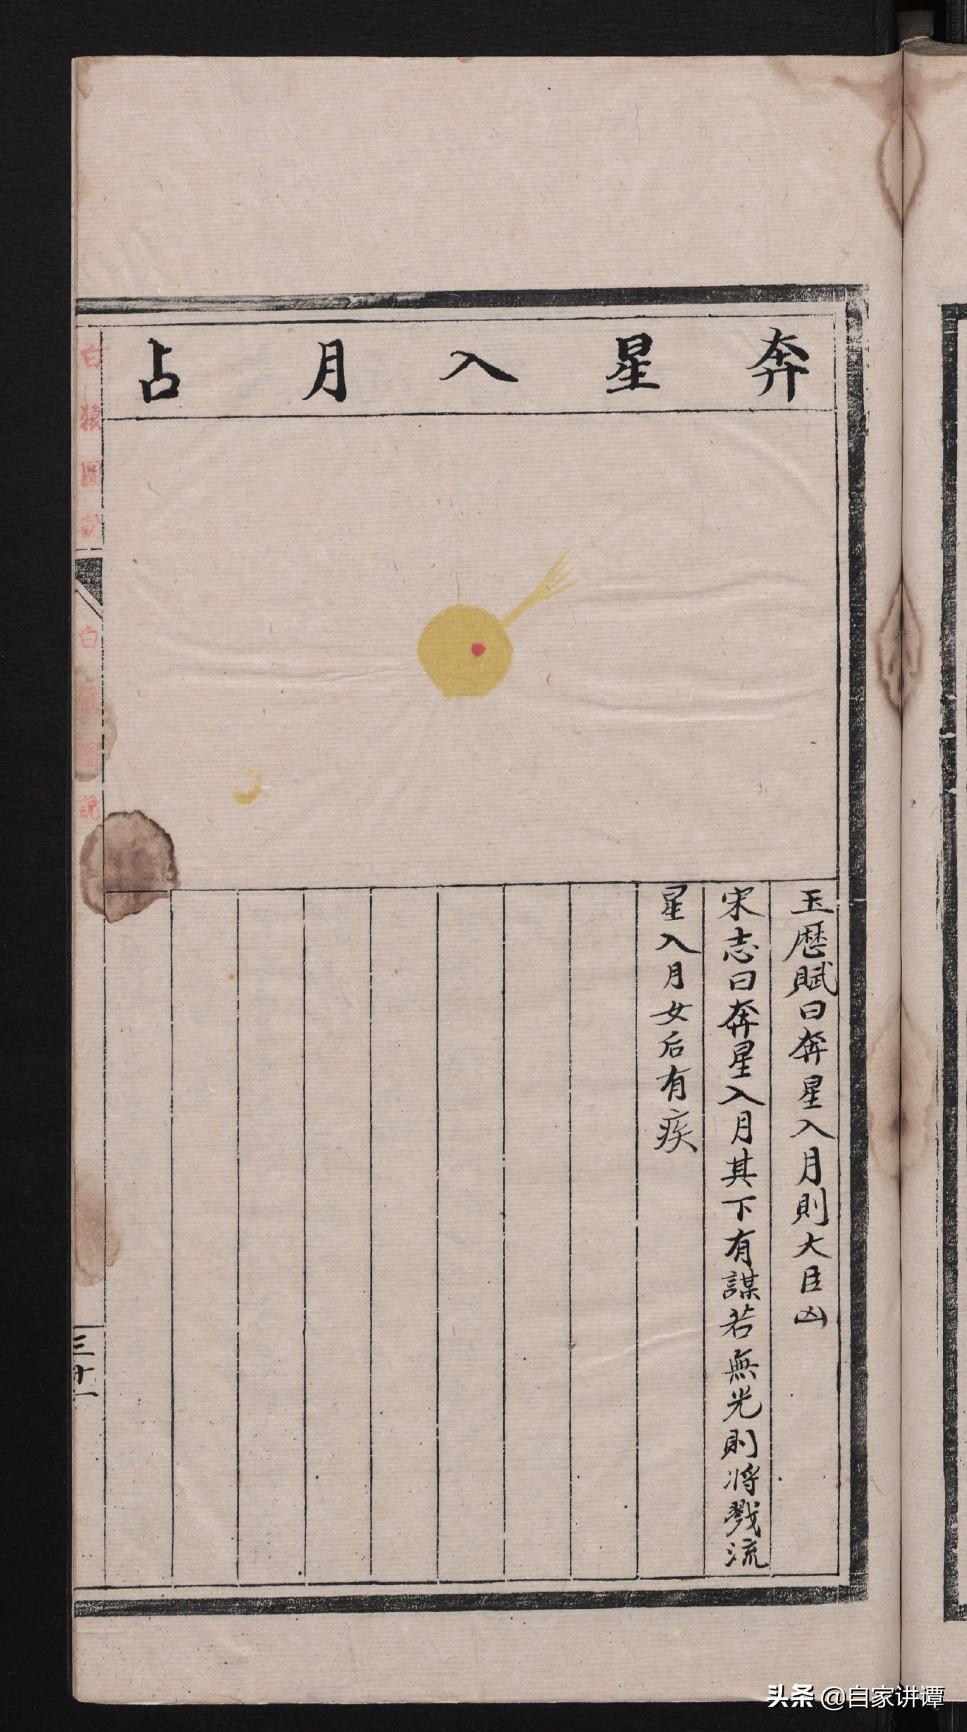 奔星入月占
玉歴賦曰奔星入月則大臣凶
宋志曰奔星入月其下有謀若無光則将戮流
星入月女后有疾
白猿圖説
白猿圖説
三十一
头条 @白家讲谭